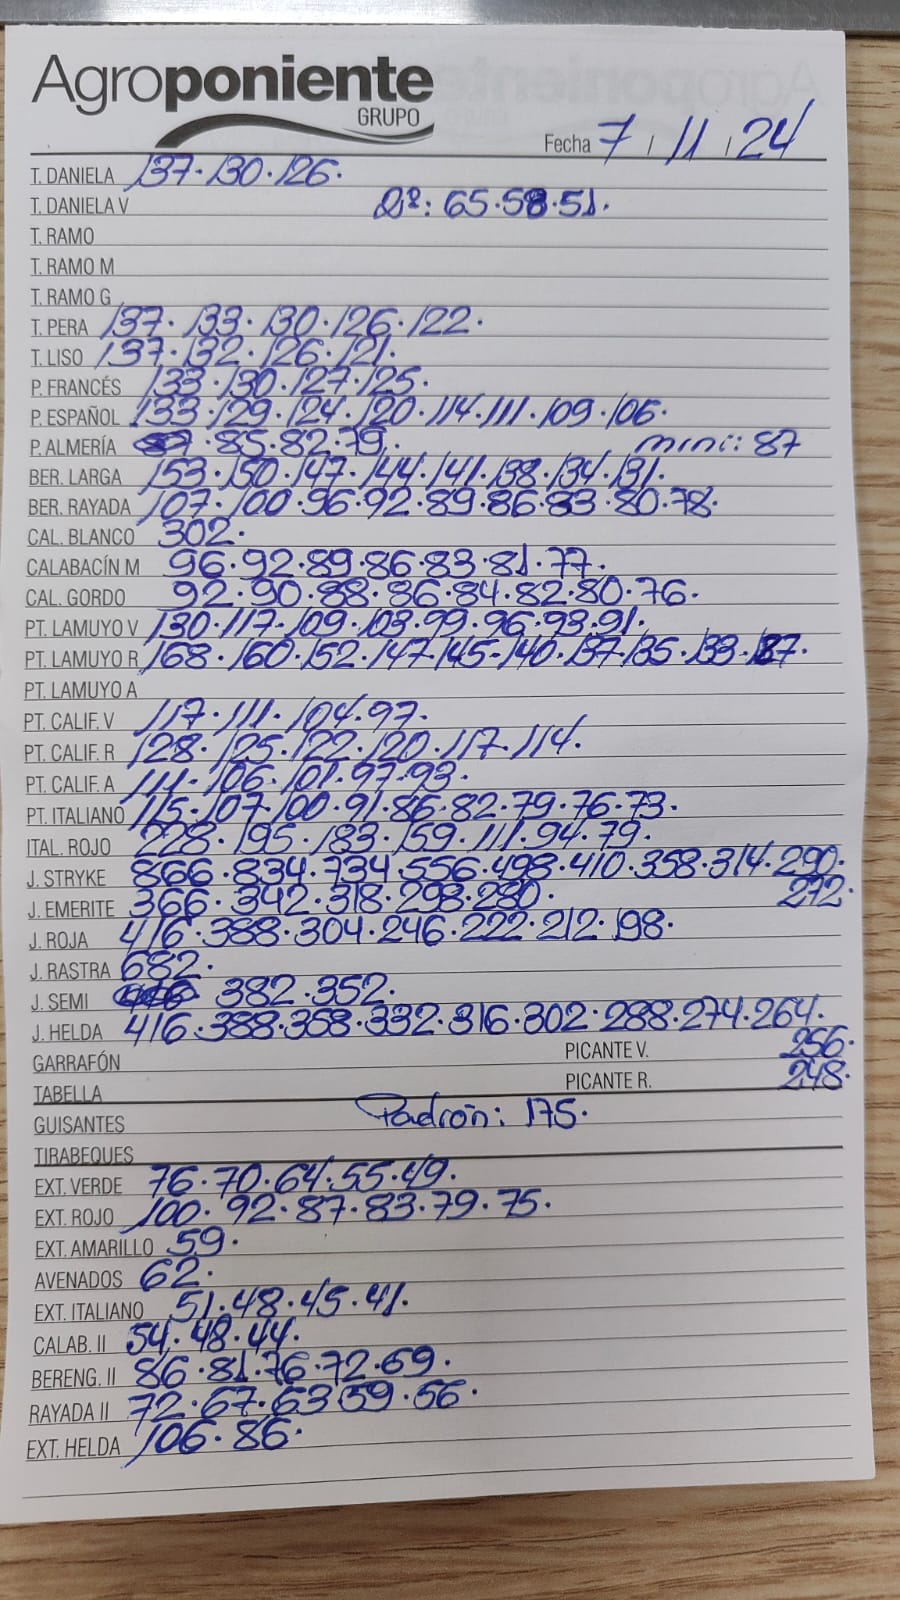 Agroponiente
GRUPO
Fecha 7 / 11 / 24
T. DANIELA 137·130·126.
T. DANIELA V 2ª: 65·58·51.
T. RAMO
T. RAMO M
T. RAMO G
T. PERA 137·133·130·126·122.
T. LISO 137·132·126·121.
P. FRANCÉS 133·130·127·125.
P. ESPAÑOL 133·129·124·120·114·111·109·106.
P. ALMERÍA 87·85·82·79. mini: 87
BER. LARGA 153·150·147·144·141·138·134·131.
BER. RAYADA 107·100·96·92·89·86·83·80·78.
CAL. BLANCO 302.
CALABACÍN M 96·92·89·86·83·81·77.
CAL. GORDO 92·90·88·86·84·82·80·76.
PT. LAMUYO V 130·117·109·103·99·96·93·91.
PT. LAMUYO R 168·160·152·147·145·140·137·135·133·127.
PT. LAMUYO A
PT. CALIF. V 117·111·104·97.
PT. CALIF. R 128·125·122·120·117·114.
PT. CALIF. A 111·106·101·97·93.
PT. ITALIANO 115·107·100·91·86·82·79·76·73.
ITAL. ROJO 228·195·183·159·111·94·79.
J. STRYKE 866·834·734·556·498·410·358·314·290.
J. EMERITE 366·342·318·298·280. 272.
J. ROJA 416·388·304·246·222·212·198.
J. RASTRA 682.
J. SEMI 382·352.
J. HELDA 416·388·358·332·316·302·288·274·264.
GARRAFÓN PICANTE V. 256.
TABELLA PICANTE R. 248.
GUISANTES Padrón: 175.
TIRABEQUES
EXT. VERDE 76·70·64·55·49.
EXT. ROJO 100·92·87·83·79·75.
EXT. AMARILLO 59.
AVENADOS 62.
EXT. ITALIANO 51·48·45·41.
CALAB. II 54·48·44.
BERENG. II 86·81·76·72·69.
RAYADA II 72·67·63·59·56.
EXT. HELDA 106·86.